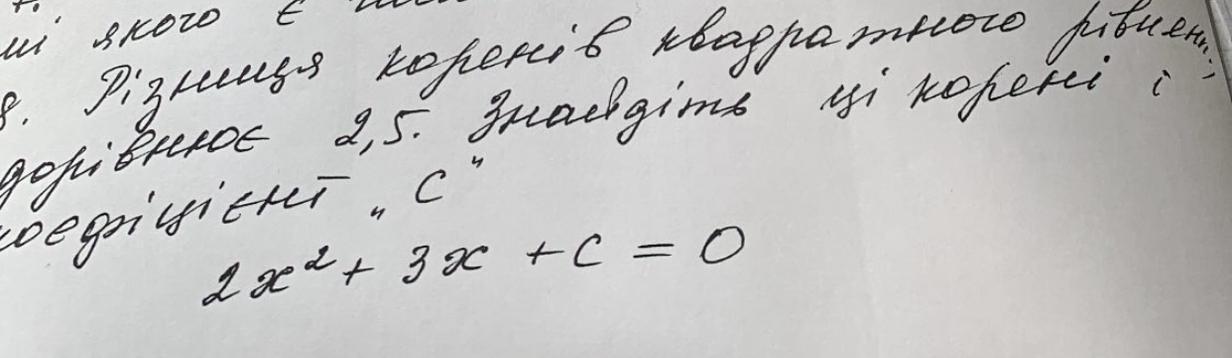 ні якого є
8. Різниця коренів квадратного рівнян
дорівнює 2,5. Знайдіть ці корені і
коефіцієнт „С"
2x² + 3x + c = 0